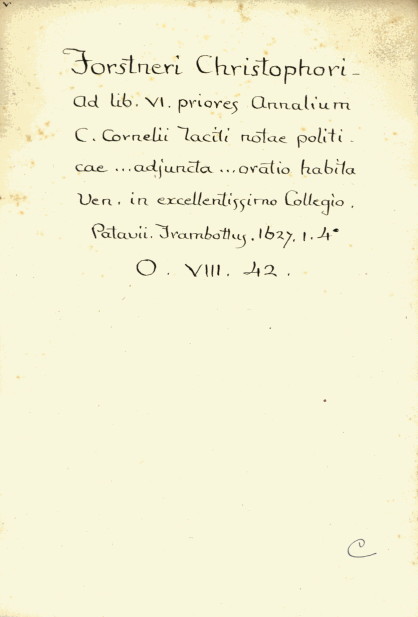 Forstneri Christophori -
Ad lib. VI. priores Annalium
C. Cornelii Taciti notae politi -
cae ... adjuncta ... oratio habita
Ven. in excellentissimo Collegio.
Patavii. Frambottus. 1627. 1. 4°
O. VIII. 42.
C